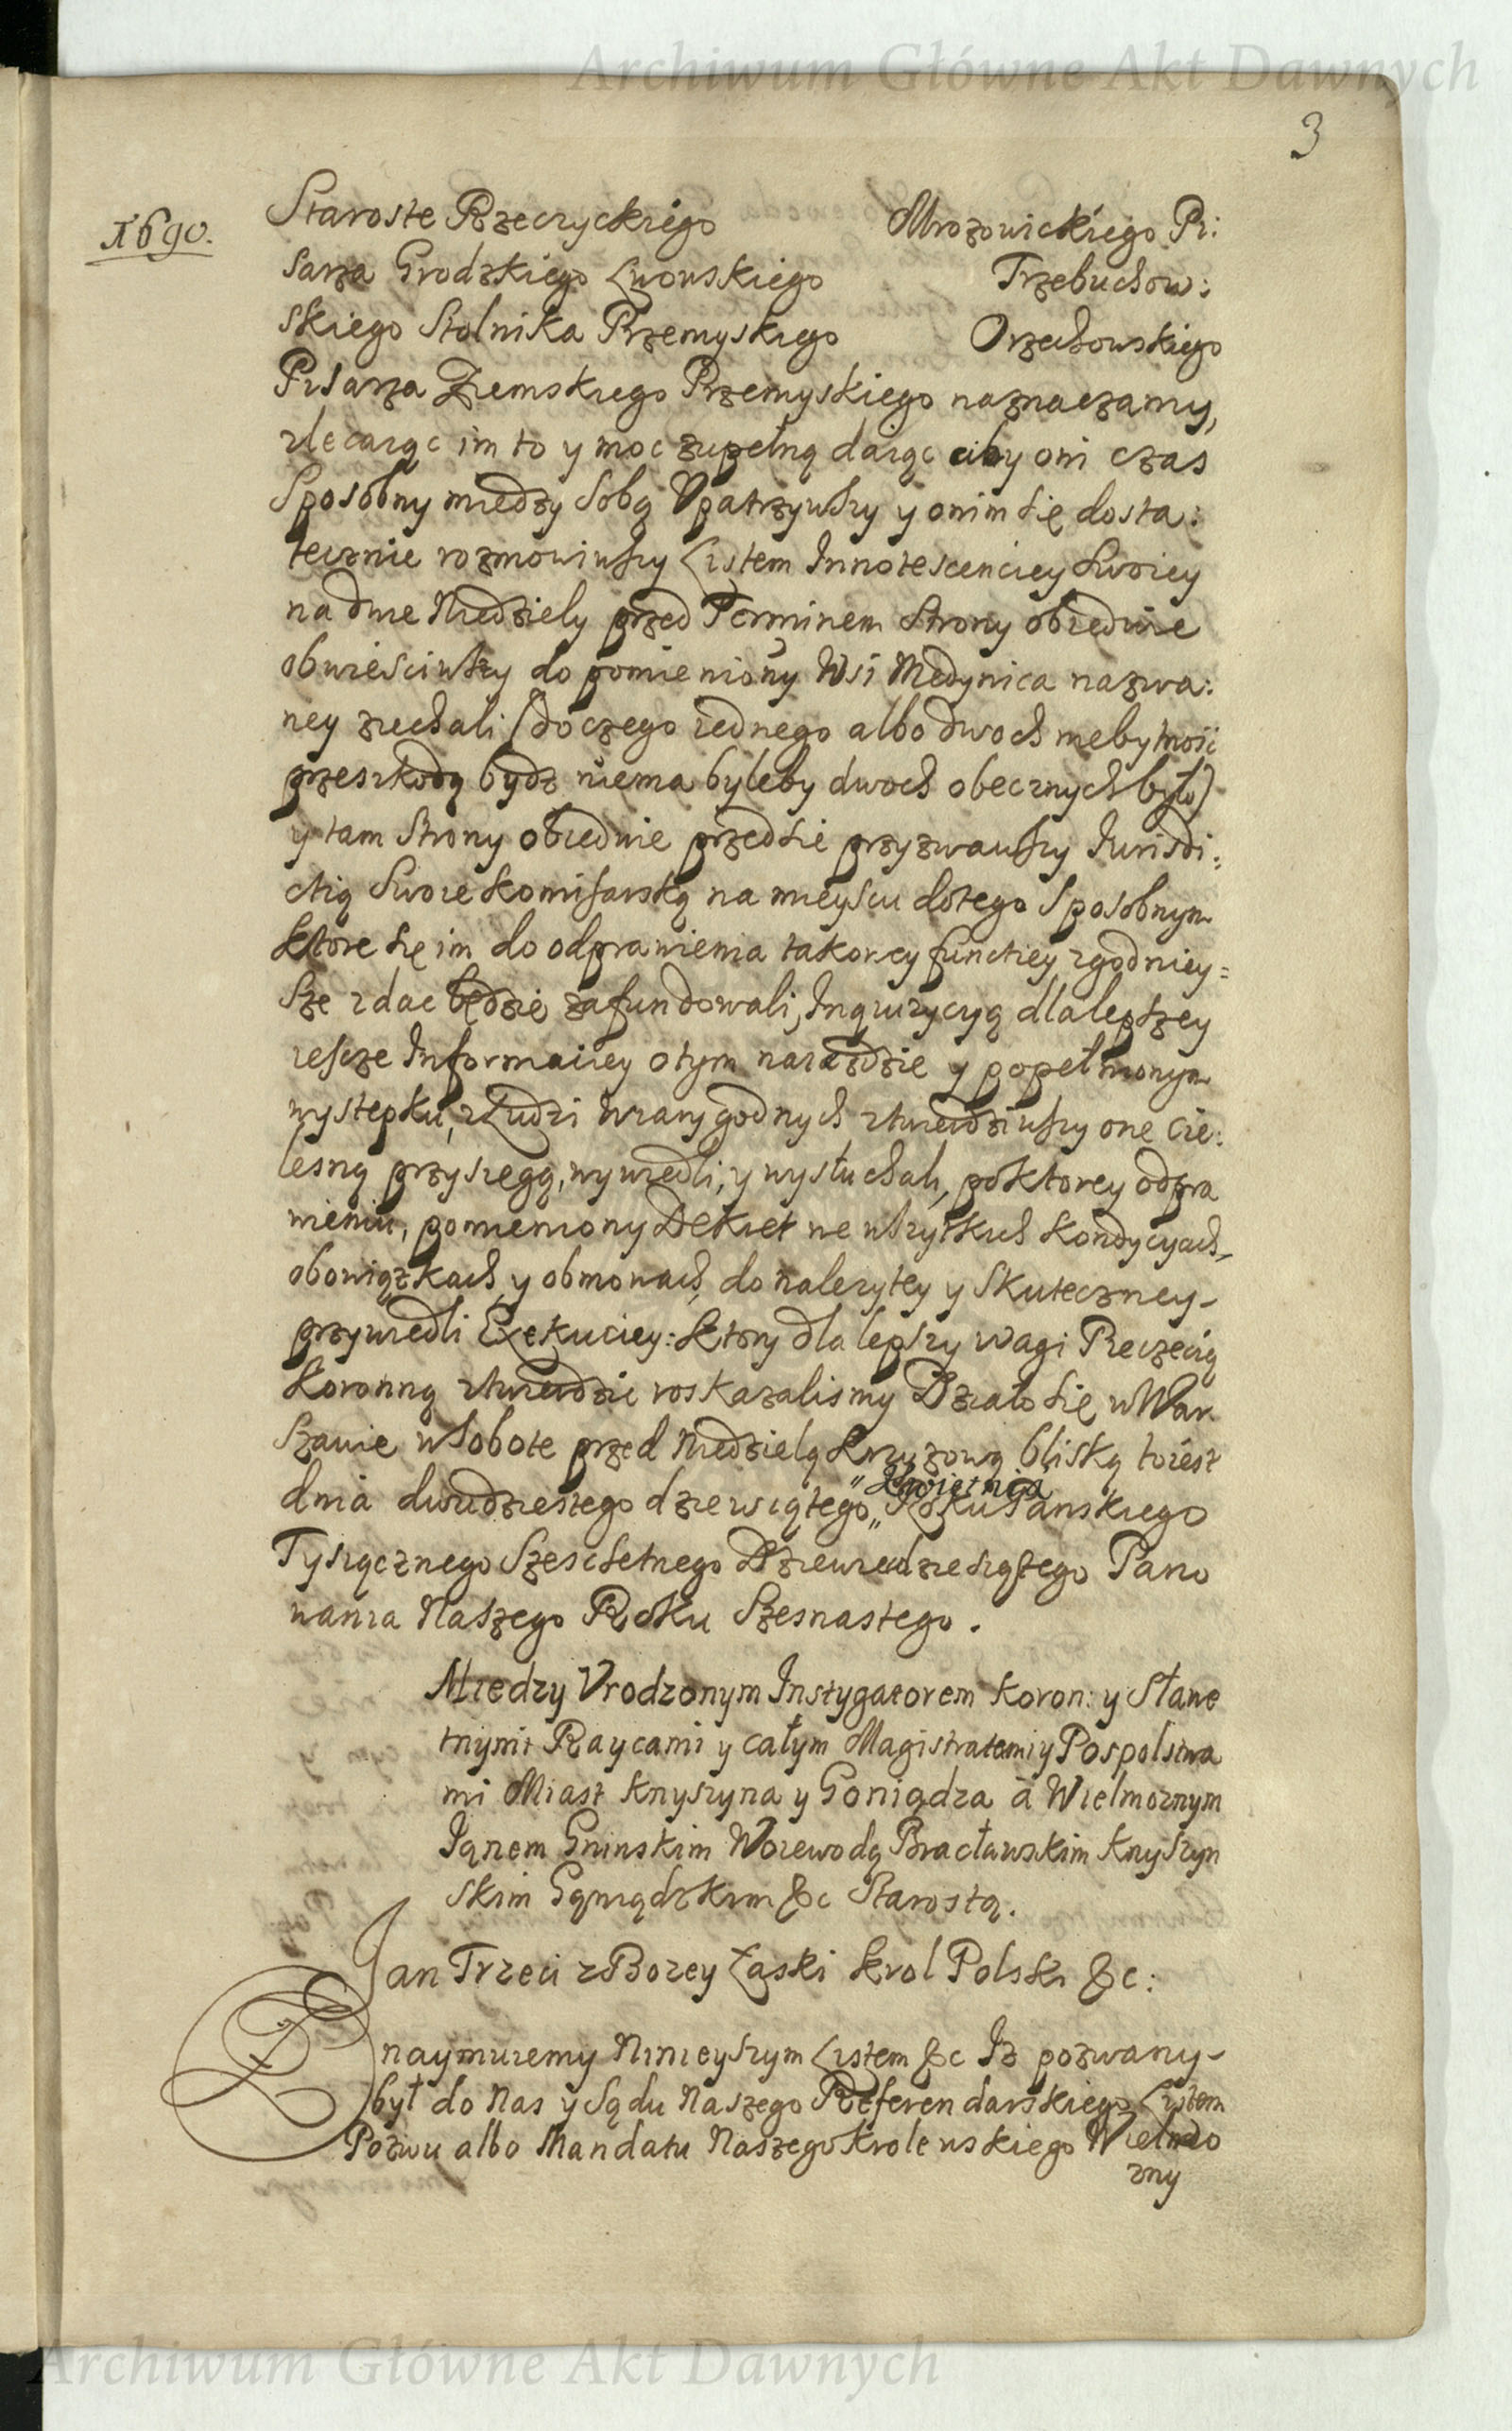 Archiwum Główne Akt Dawnych
3
1690.
Staroste Rzeczyckiego Mrozowickiego Pi:
sarza Grodzkiego Lwowskiego Trzebuchow:
skiego Stolnika Przemyskiego Orzechowskiego
Pisarza Ziemskiego Przemyskiego naznaczamy,
zlecaiąc im to y moc zupełną daiąc aby oni czas
Sposobny między sobą Vpatrzywszy y onim się dosta:
tecznie rozmowiwszy Listem Innotescenciey Swoiey
na dwie Niedziely przed Terminem Strony obiedwie
obwieściwszy do pomieniony Wsi Medynica nazwa:
ney ziechali (do czego iednego albo dwoch niebytność
przeszkodą bydz niema byleby dwoch obecznych było)
y tam Strony obiedwie przedsie przyzwawszy Iurisdi:
ctią Swoie Komisarską na mieyscu dotego Sposobnym
ktore się im do odprawienia takowey functiey zgodniey=
sze zdac będzie zafundowali, Inquizycyą dla lepszey
iescze Informaciey o tym naiazdzie y popełnionym
wystepku, z Ludzi wiarygodnych ztwierdziwszy one Cie:
lesną przysięgą, wywiedli, y wysłuchali, po ktorey odpra
wieniu, pomieniony Dekret we wszytkich kondycyach,
obowiązkach, y obmowach, do należytey y Skuteczney
przywiedli Exekuciey: ktory dla lepszy wagi Pieczęcią
Koronną ztwierdzic roskazalismy Działo się w War
szawie w Sobote przed Niedzielą Krzyzową bliską toiest
dnia dwudziestego dziewiątego „ Kwietnia „ Roku Panskiego
Tysiącznego Szescsetnego Dziewiedziesiątego Pano
wania Naszego Roku Szesnastego.
Miedzy Vrodzonym Instygatorem Koron: y Sławe
tnymi Raycami y całym Magistratem y Pospolstwa
mi Miast Knyszyna y Goniądza à Wielmoznym
Ianem Gninskim Woiewodą Bracławskim Knyszyn
skim Gąniądzkim &c Starostą.
Jan Trzeci z Bozey Łaski Krol Polski &c:
Znaymuiemy Ninieyszym Listem &c Iż pozwany
był do Nas y Sądu Naszego Referendarskiego Listem
Pozwu albo Mandatu Naszego Krolewskiego Wielmo
zny
Archiwum Główne Akt Dawnych